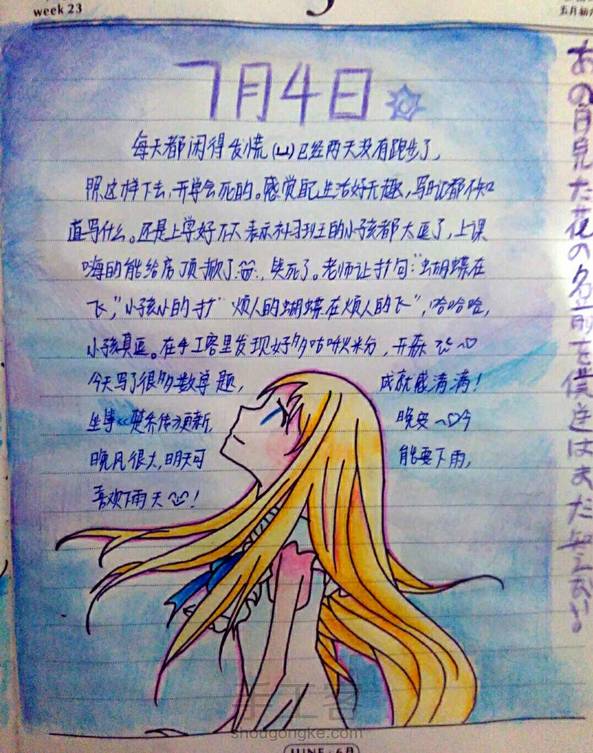 week 23
7月4日
每天都闲得发慌(一一)已经两天没有跑步了,
照这样下去,开学会死的。感觉自己生活好无趣,写日记都不知
道写什么。还是上学好不不 表示补习班的小孩都太逗了,上课
嗨的能给房顶掀了 笑死了。老师让扩句:"蝴蝶在
飞,"小孩小的扩"烦人的蝴蝶在烦人的飞",哈哈哈,
小孩真逗。在手工客里发现好多咕啾米粉,开森
今天写了很多数学题, 成就感满满!
坐等 更新, 晚安
晚风很大,明天可 能要下雨,
喜欢下雨天!
あの日見た花の名前を僕達はまだ知らない
手工客
shougongke.com
JUNE · 6月